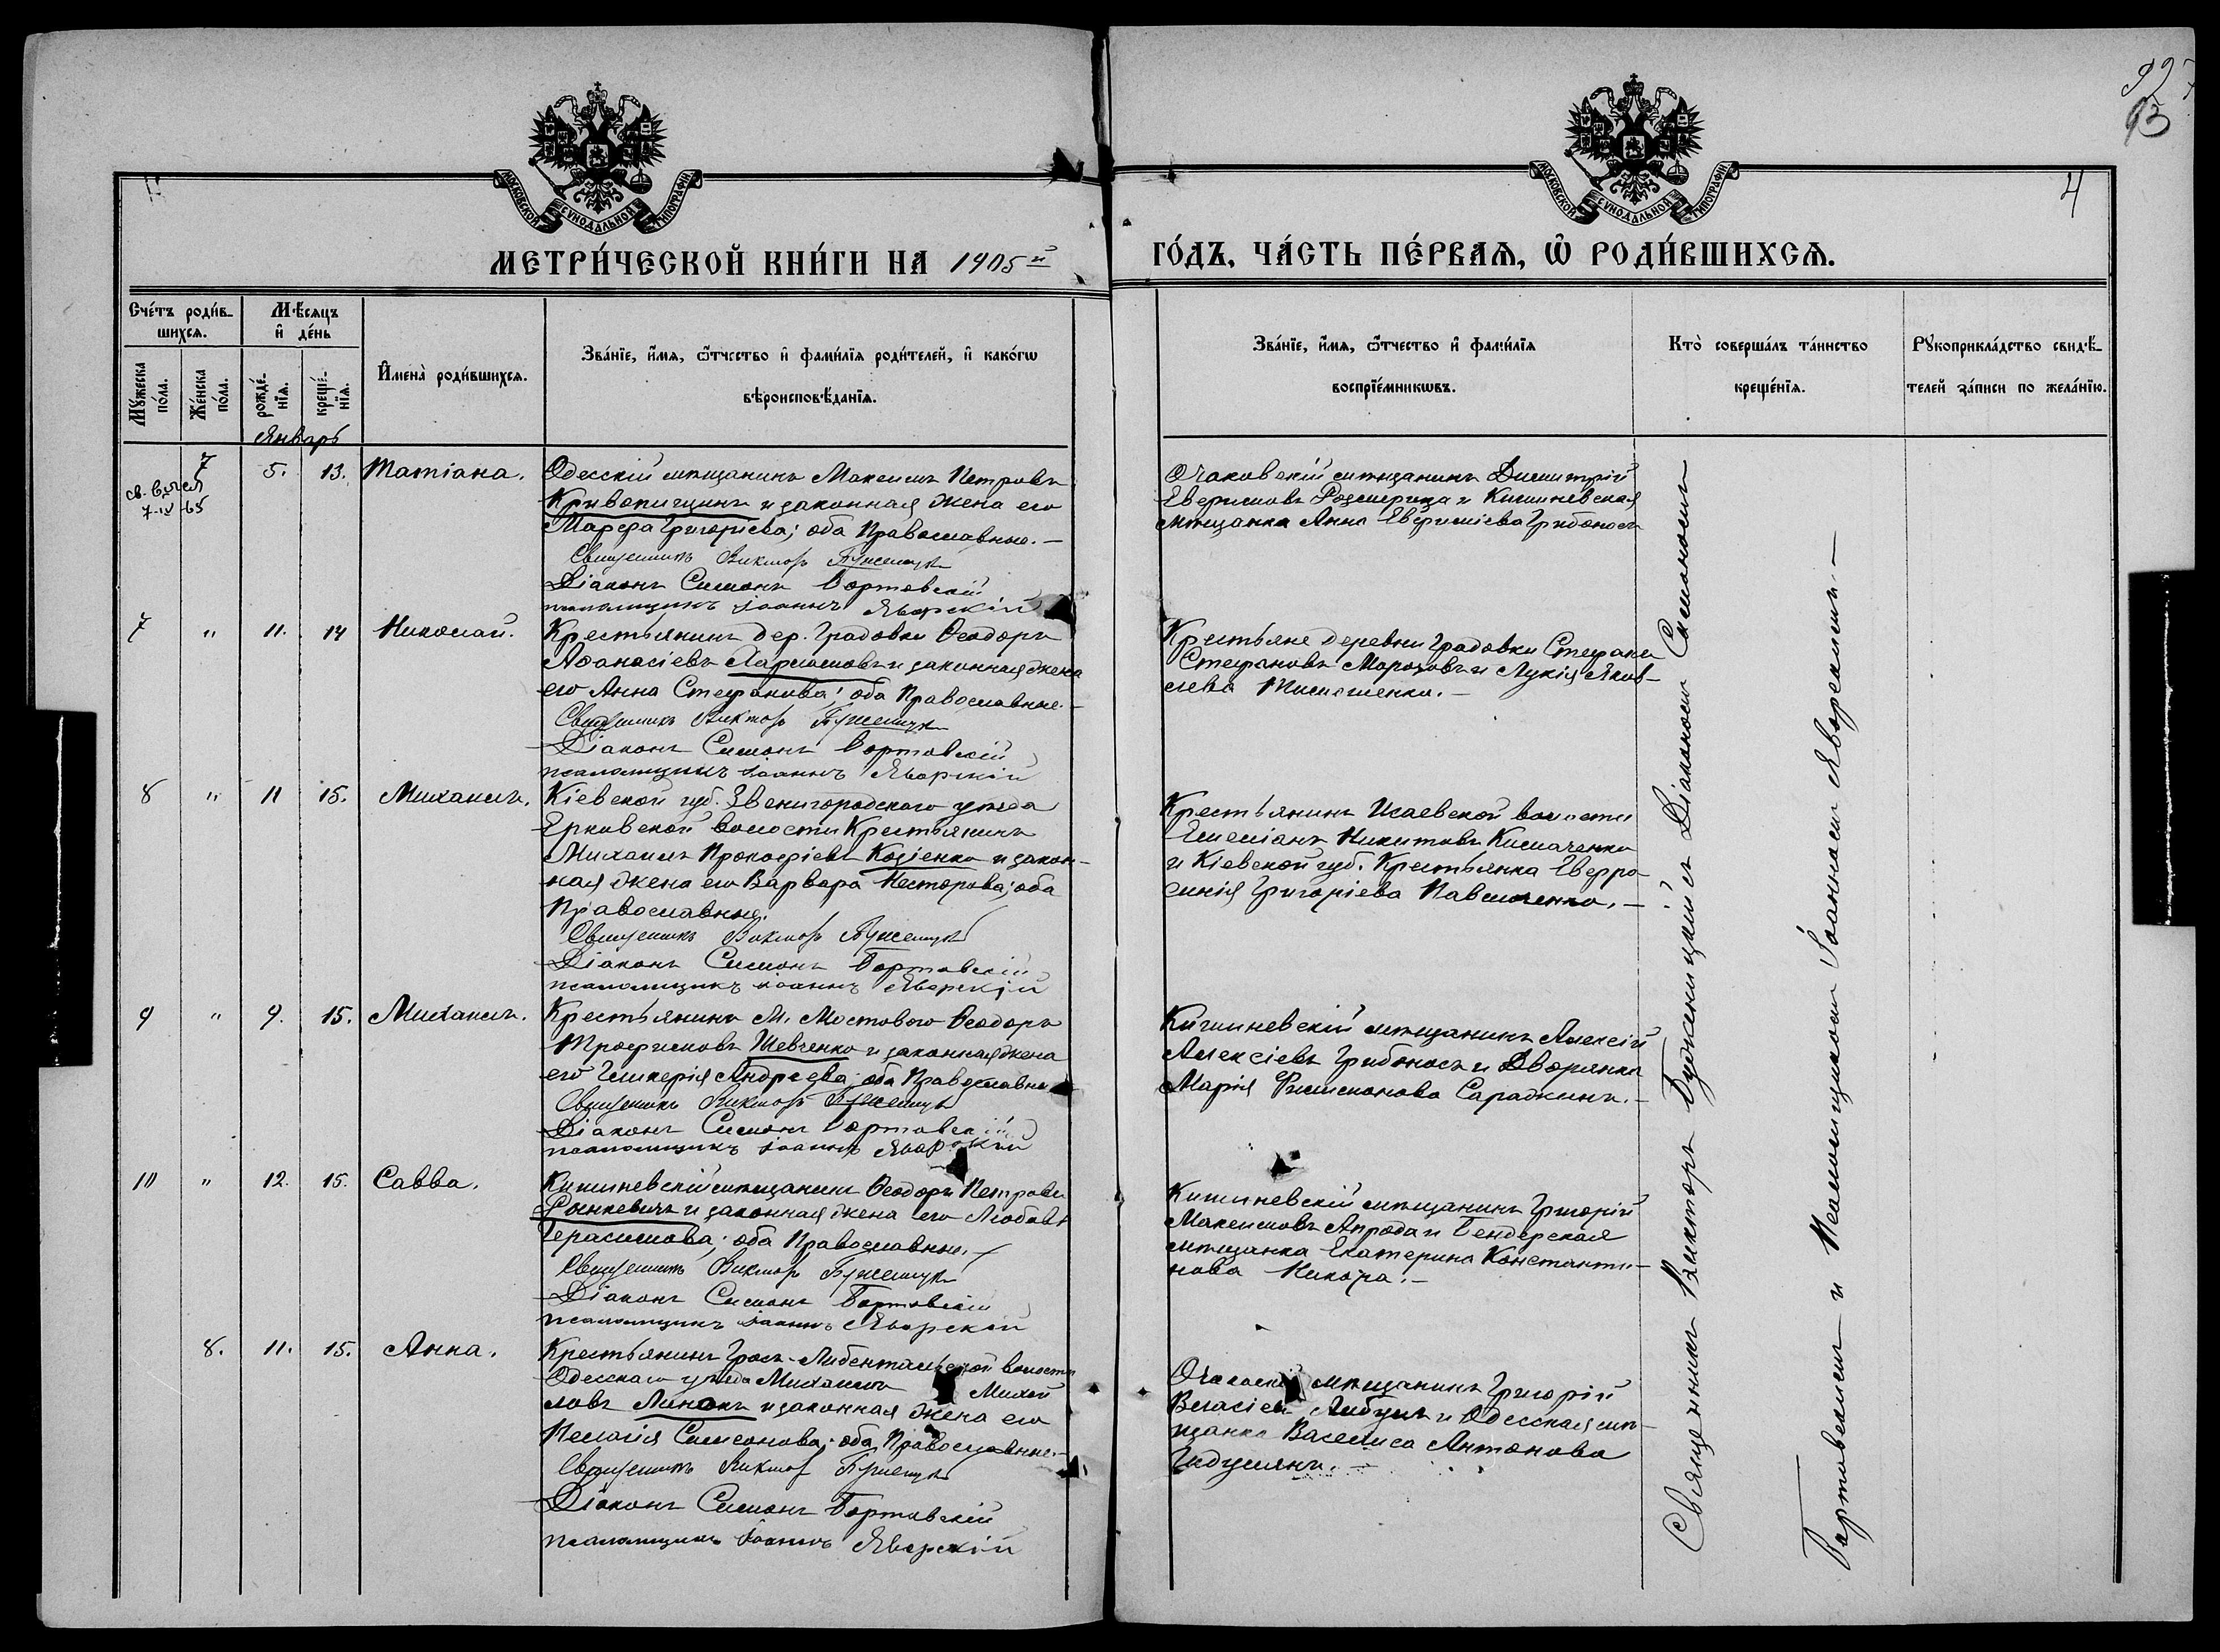 93
4
МОСКОВСКОЙ СѴНОДАЛЬНОЙ ТИПОГРАФІИ
МОСКОВСКОЙ СѴНОДАЛЬНОЙ ТИПОГРАФІИ
МЕТРИ́ЧЕСКОЙ КНИ́ГИ НА 1905й
ГО́ДЪ, ЧА́СТЬ ПЕ́РВАѦ, Ѽ РОДИ́ВШИХСѦ.
Сче́тъ роди́в-
шихсѧ.
Мѣ́сѧцъ
и҆ де́нь
Мꙋ́жеска по́ла.
Же́нска по́ла.
рожде́-
нїѧ.
креще́-
нїѧ.
И҆мена̀ роди́вшихсѧ.
Зва́нїе, и҆́мѧ, ѻ҆́тчество и҆ фами́лїѧ роди́телей, и҆ како́гѡ
вѣроисповѣ́данїѧ.
Зва́нїе, и҆́мѧ, ѻ҆́тчество и҆ фами́лїѧ
воспрїе́мникѡвъ.
Кто̀ соверша́лъ та́инство
креще́нїѧ.
Рꙋкоприкла́дство свидѣ́-
телей за́писи по жела́нїю.
Январь
7 5. 13. Татіана.
св.
7-IV-65
Одесскій мѣщанинъ Максимъ Петровъ
Кривопищинъ и законная жена его
Марфа Григоріева; оба Православные.—
Священникъ Викторъ
Діаконъ Симонъ Бортовскій
псаломщикъ Іоаннъ Яворскій
Очаковскій мѣщанинъ Димитрій
Евфимовъ Розмерица и Кишиневская
мѣщанка Анна Евфиміева Грибоносъ
7 " 11. 14 Николай.
Крестьянинъ дер. Градовки Ѳеодоръ
Аѳанасіевъ и законная жена
его Анна Стефанова; оба Православные.—
Священникъ Викторъ
Діаконъ Симонъ Бортовскій
псаломщикъ Іоаннъ Яворскій
Крестьяне деревни Градовки Стефанъ
Стефановъ Морозовъ и Лукія Яков-
лева Тимошенко.—
8 " 11 15. Михаилъ.
Кіевской губ. Звенигородского уѣзда
Ерковской волости Крестьянинъ
Михаилъ Прокофіевъ Козіенко и закон-
ная жена его Варвара Несторова; оба
Православные.
Священникъ Викторъ
Діаконъ Симонъ Бортовскій
псаломщикъ Іоаннъ Яворскій
Крестьянинъ Исаевской волости
Емеліанъ Никитовъ Кислаченко
и Кіевской губ. Крестьянка Евфро-
синія Григоріева Павличенко.—
9 " 9. 15. Михаилъ.
Крестьянинъ м. Мостового Ѳеодоръ
Трофимовъ Шевченко и законная жена
его Гликерія Андреева; оба Православны
Священникъ Викторъ
Діаконъ Симонъ Бортовскій
псаломщикъ Іоаннъ Яворскій
Кишиневскій мѣщанинъ Алексій
Алексіевъ Грибоносъ и Дворянка
Марія Филимонова Сарадкинъ.—
10 " 12. 15. Савва.
Кишиневскій мѣщанинъ Ѳеодоръ Петровъ
и законная жена его Любовь
Герасимова; оба Православные.—
Священникъ Викторъ
Діаконъ Симонъ Бортовскій
псаломщикъ Іоаннъ Яворскій
Кишиневскій мѣщанинъ Григорій
Максимовъ Апрода и Бендерская
мѣщанка Екатерина Константи-
нова Никора.—
8. 11. 15. Анна.
Крестьянинъ Грос-Либентальской волости
Одесскаго уѣзда Михаилъ Михай
ловъ Линокъ и законная жена его
Пелагія Симеонова; оба Православные.—
Священникъ Викторъ
Діаконъ Симонъ Бортовскій
псаломщикъ Іоаннъ Яворскій
мѣщанинъ Григорій
Власіев и Одесская мѣ-
щанка Василиса Антонова
Священникъ Викторъ съ Діакономъ Симономъ
Бортовскимъ и Псаломщикомъ Іоанномъ Яворскимъ.—